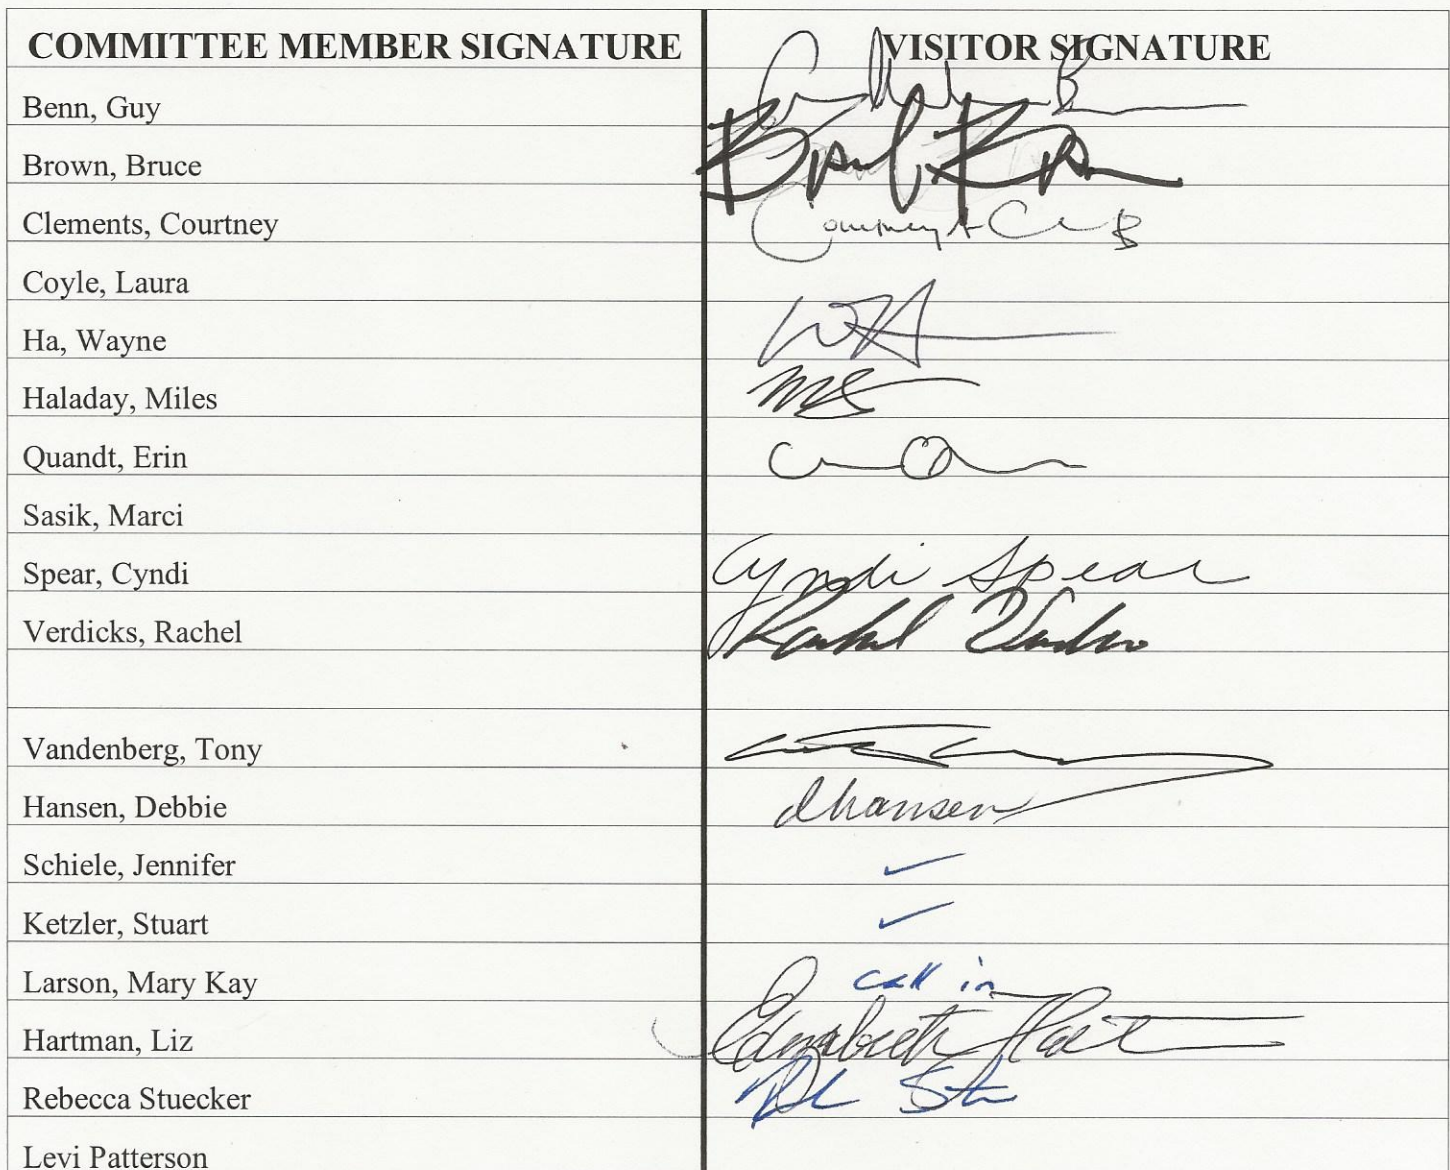 COMMITTEE MEMBER SIGNATURE VISITOR SIGNATURE
Benn, Guy
Brown, Bruce
Clements, Courtney Courtney A
Coyle, Laura
Ha, Wayne
Haladay, Miles
Quandt, Erin
Sasik, Marci
Spear, Cyndi Cyndi Spear
Verdicks, Rachel Rachel
Vandenberg, Tony
Hansen, Debbie dhansen
Schiele, Jennifer ✓
Ketzler, Stuart ✓
Larson, Mary Kay call in
Hartman, Liz
Rebecca Stuecker
Levi Patterson